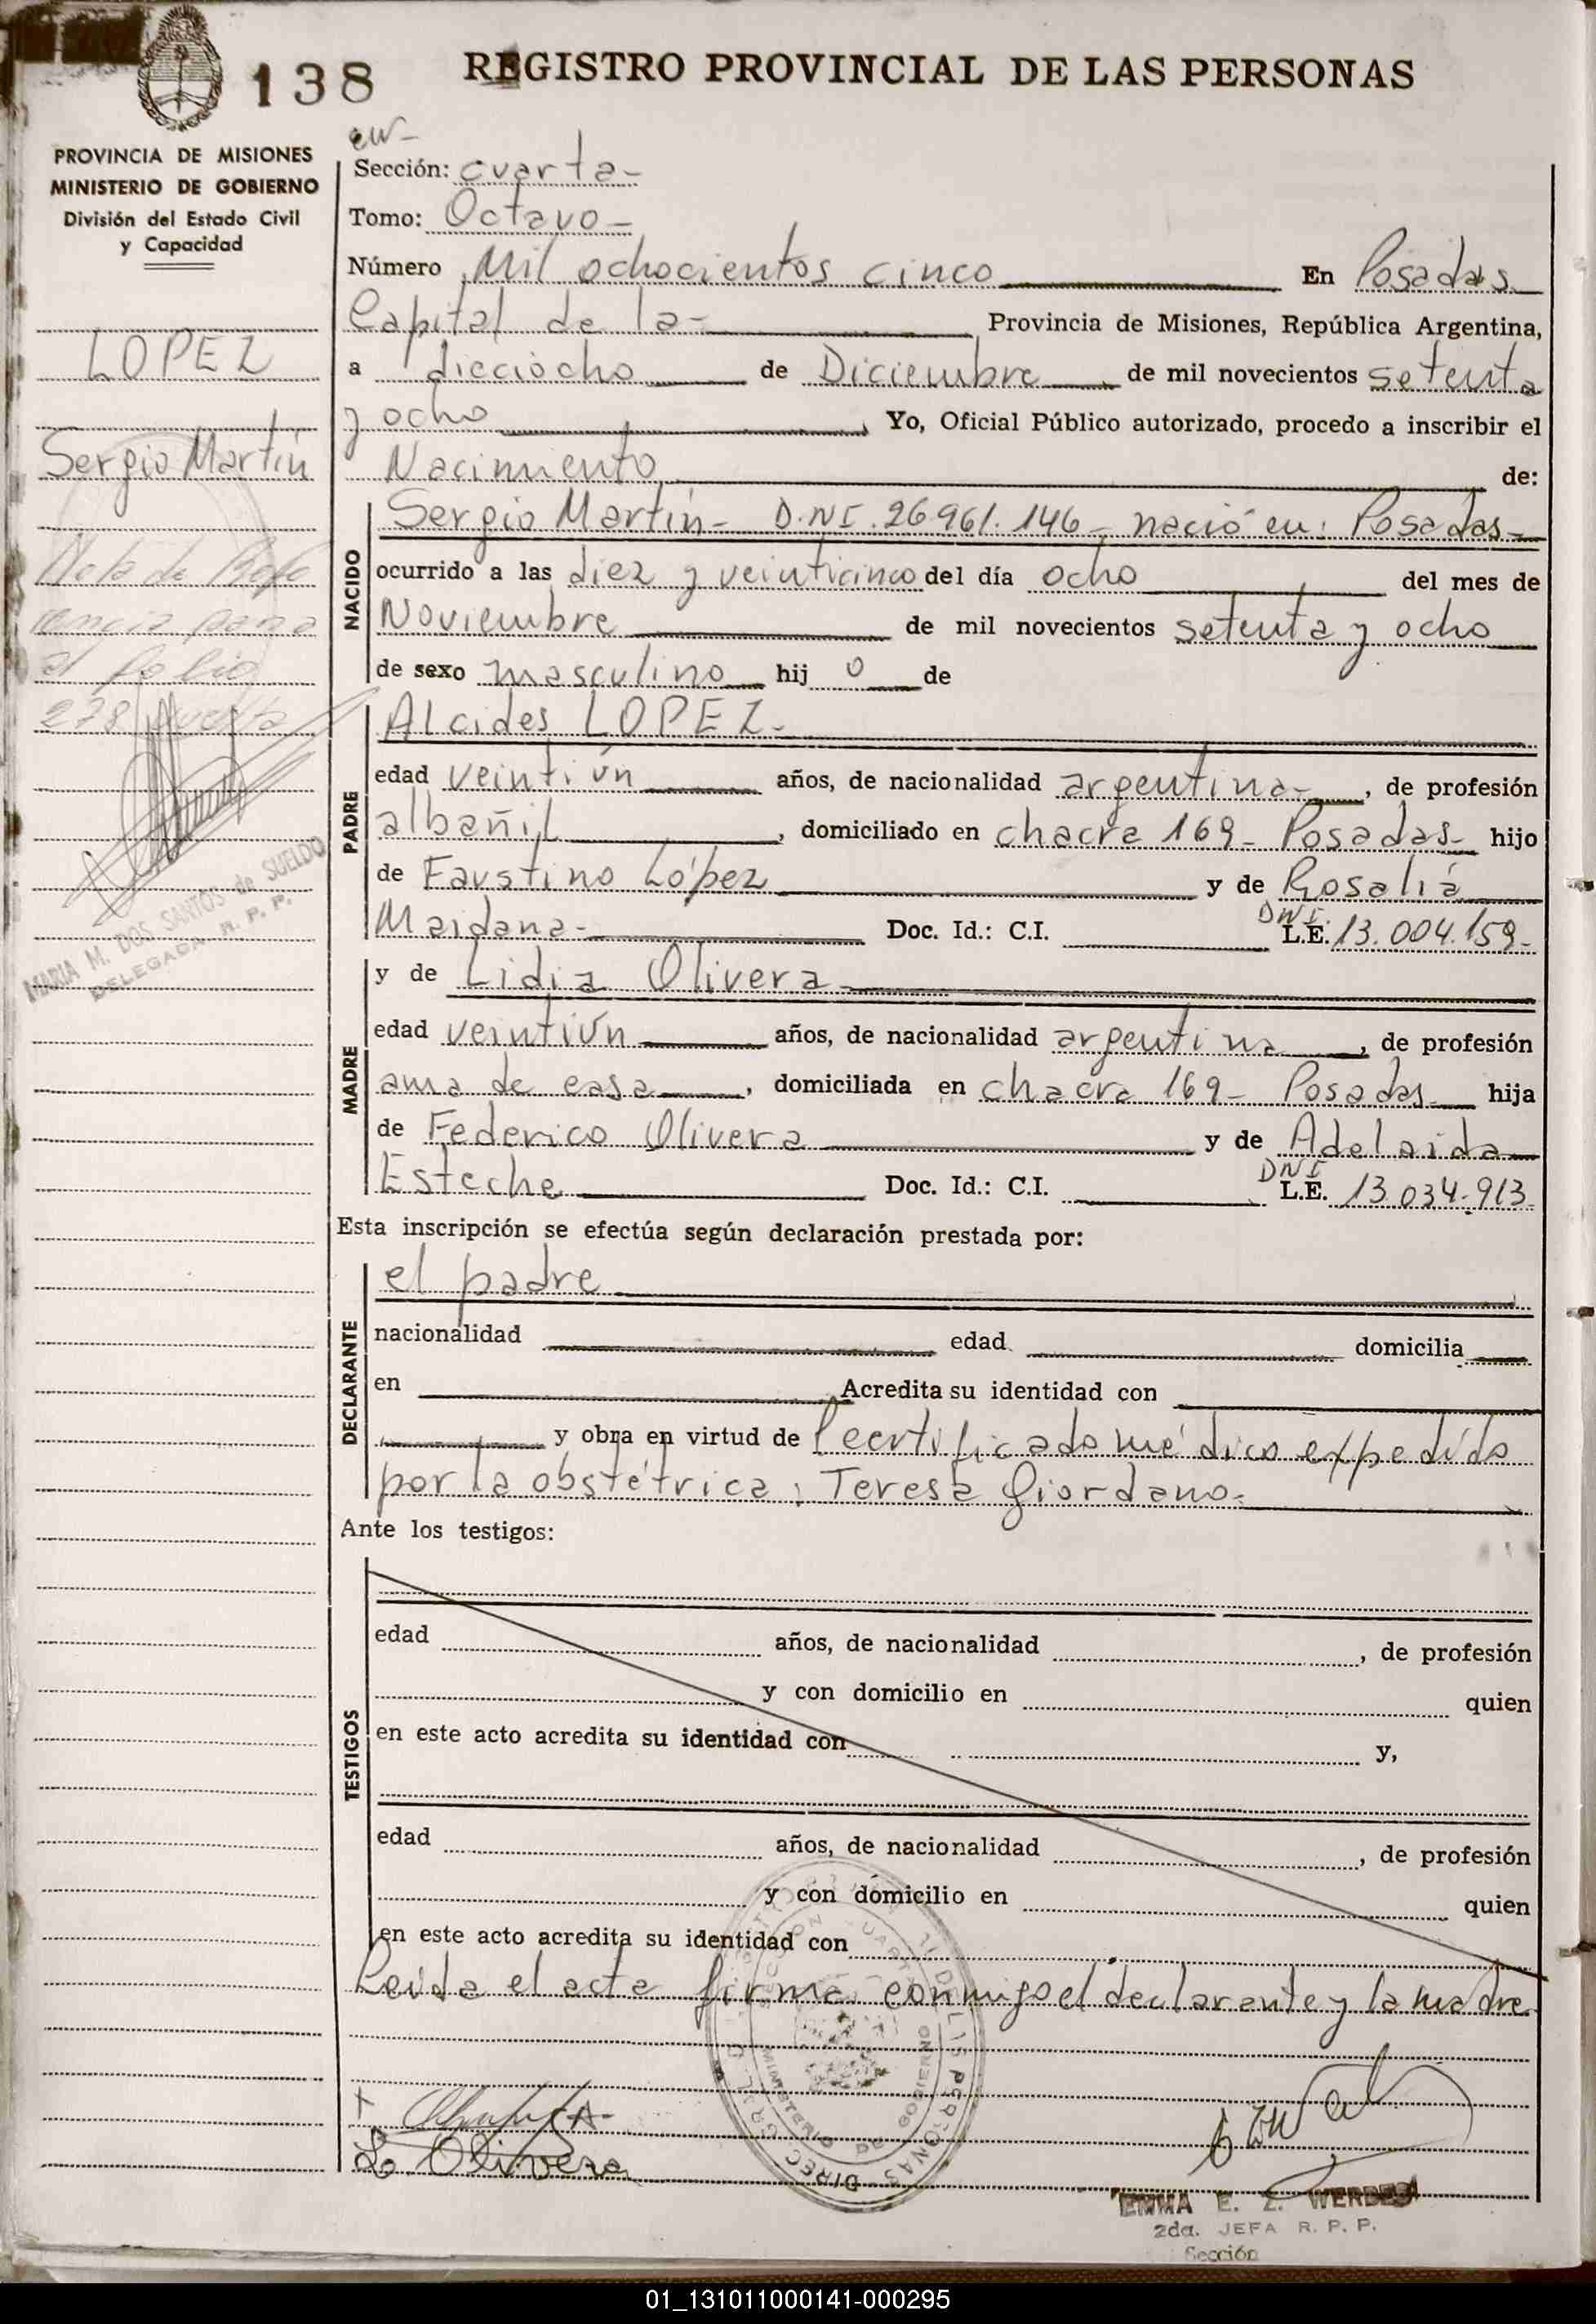 138
REGISTRO PROVINCIAL DE LAS PERSONAS
PROVINCIA DE MISIONES
MINISTERIO DE GOBIERNO
División del Estado Civil
y Capacidad
LOPEZ
Sergio Martín
Nota de Refe
rencia para
al folio
278 vuelta
MARIA M. DOS SANTOS de SUELDO
DELEGADA R. P. P.
Sección: cuarta-
Tomo: Octavo-
Número Mil ochocientos cinco En Posadas
Capital de la- Provincia de Misiones, República Argentina,
a dieciocho de Diciembre de mil novecientos setenta
y ocho, Yo, Oficial Público autorizado, procedo a inscribir el
Nacimiento de:
NACIDO
Sergio Martín- D.NI.26.961.146- nació en: Posadas-
ocurrido a las diez y veinticinco del día ocho del mes de
Noviembre de mil novecientos setenta y ocho
de sexo masculino hij o de
PADRE
Alcides LOPEZ-
edad veintiún años, de nacionalidad argentina-, de profesión
albañil, domiciliado en chacra 169- Posadas- hijo
de Faustino López y de Rosalía
Maidana- Doc. Id.: C.I. DNI. L.E. 13.004.159-
MADRE
y de Lidia Olivera
edad veintiún años, de nacionalidad argentina, de profesión
ama de casa, domiciliada en chacra 169- Posadas hija
de Federico Olivera y de Adelaida
Esteche Doc. Id.: C.I. DNI L.E. 13.034.913-
Esta inscripción se efectúa según declaración prestada por:
DECLARANTE
el padre
nacionalidad edad domicilia
en Acredita su identidad con
y obra en virtud de certificado médico expedido
por la obstétrica, Teresa Giordano-
Ante los testigos:
TESTIGOS
edad años, de nacionalidad , de profesión
y con domicilio en quien
en este acto acredita su identidad con y,
edad años, de nacionalidad , de profesión
y con domicilio en quien
en este acto acredita su identidad con
Leída el acta firma conmigo el declarante y la madre
L. Olivera
MINISTERIO DE GOBIERNO
EMMA E. Z. WERDES
2da. JEFA R. P. P.
Sección
01_131011000141-000295